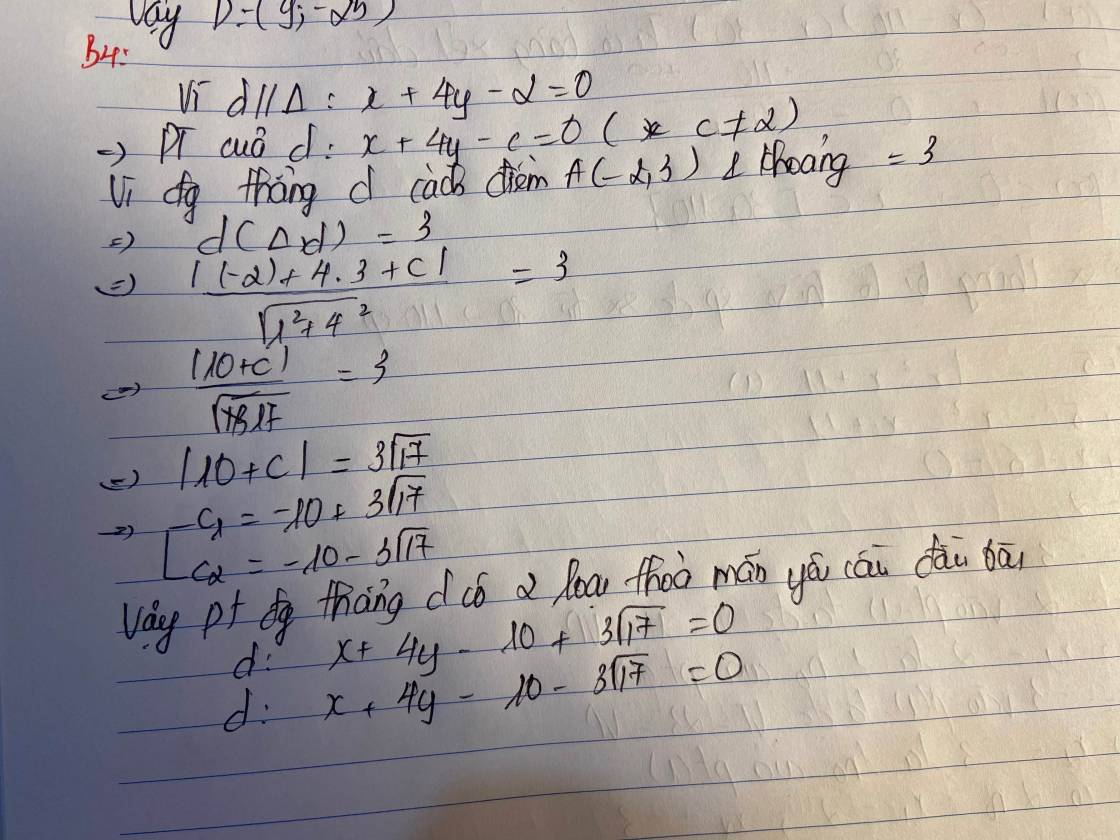 Vậy D=(9; -25)
B4:
Vì d//Δ: x + 4y - 2 = 0
=> PT cuả d: x + 4y - c = 0 ( c ≠ 2)
Vì đg thẳng d cách điểm A(-2,3) 1 khoảng = 3
=> d(Δ,d) = 3
=> |(-2) + 4.3 + c| / √(1² + 4²) = 3
=> |10+c| / √17 = 3
=> |10+c| = 3√17
=> [ c₁ = -10 + 3√17
c₂ = -10 - 3√17
Vậy pt đg thẳng d có 2 loại thoả mãn yêu cầu đầu bài
d: x + 4y - 10 + 3√17 = 0
d: x + 4y - 10 - 3√17 = 0